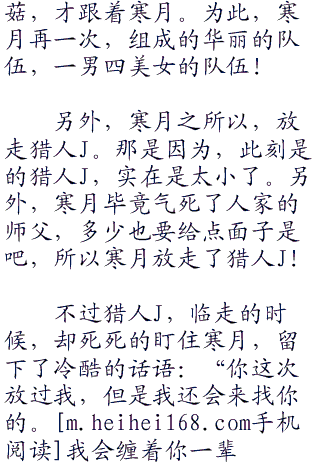 菇，才跟着寒月。为此，寒
月再一次，组成的华丽的队
伍，一男四美女的队伍！
另外，寒月之所以，放
走猎人J。那是因为，此刻是
的猎人J，实在是太小了。另
外，寒月毕竟气死了人家的
师父，多少也要给点面子是
吧，所以寒月放走了猎人J！
不过猎人J，临走的时
候，却死死的盯住寒月，留
下了冷酷的话语：“你这次
放过我，但是我还会来找你
的。[m.heihei168.com手机
阅读]我会缠着你一辈